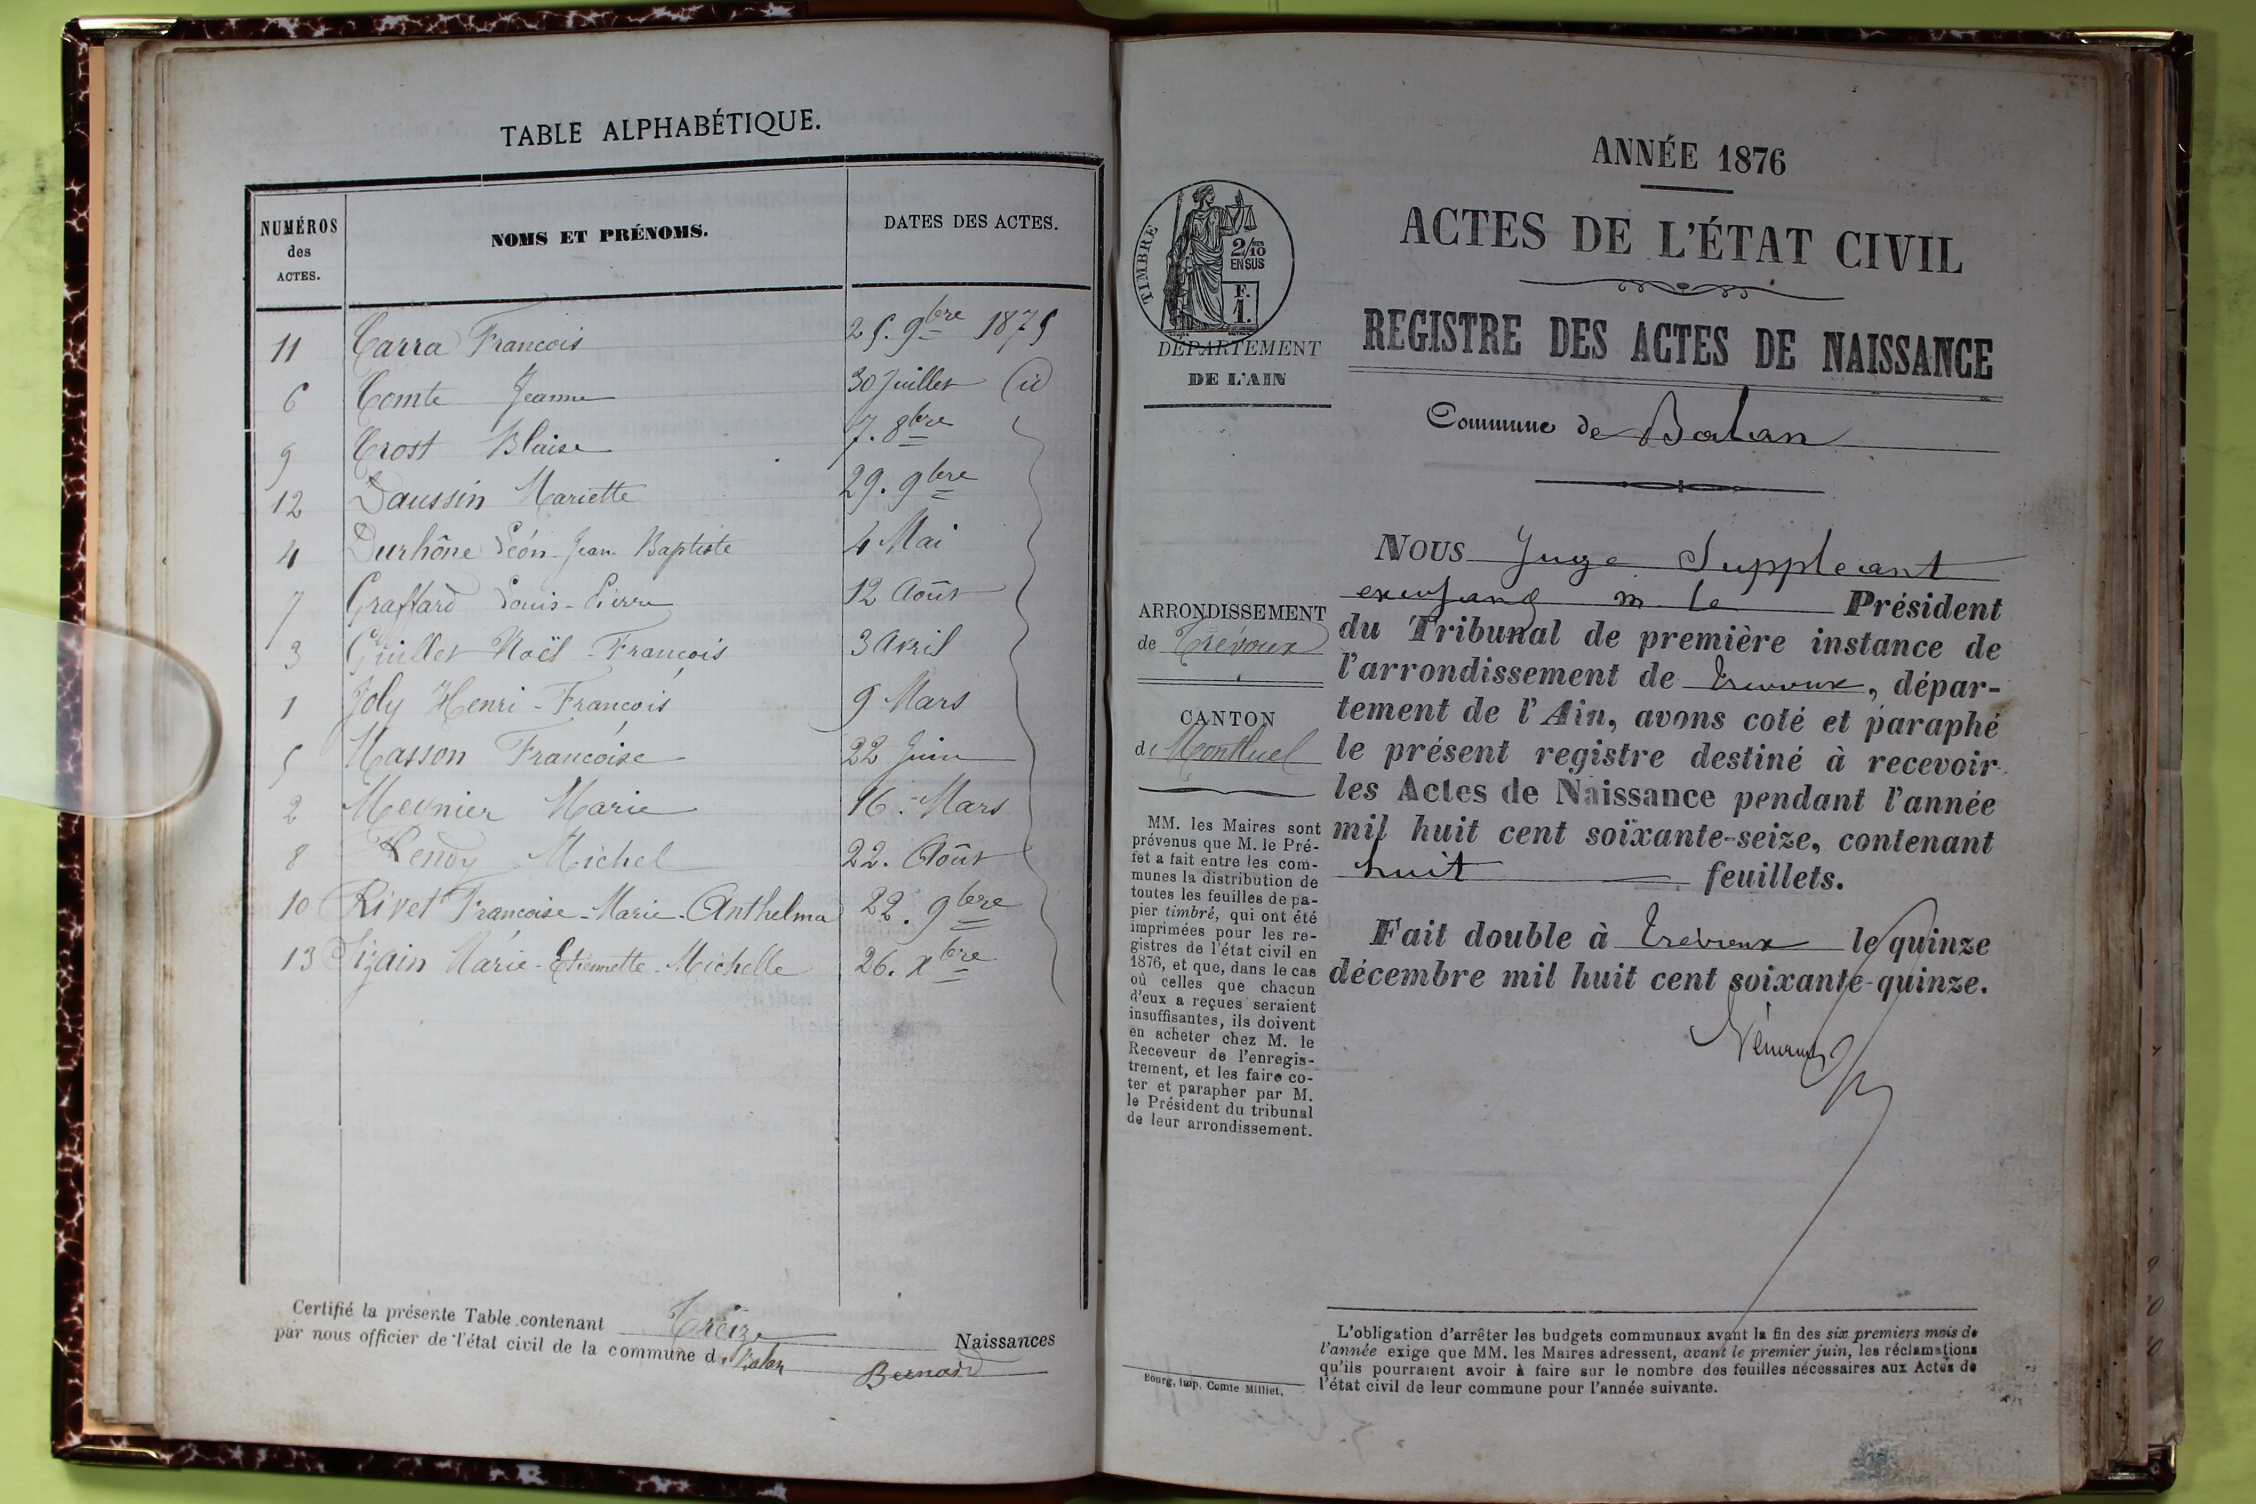 TABLE ALPHABÉTIQUE.
NUMÉROS des ACTES. NOMS ET PRÉNOMS. DATES DES ACTES.
11 Carra François 25. 9bre 1875
6 Comte Jeanne 30 Juillet id
9 Crost Blaise 7. 8bre
12 Daussin Mariette 29. 9bre
4 Durhône Léon Jean Baptiste 4 Mai
7 Graffard Louis-Pierre 12 Août
3 Guillet Noël-François 3 Avril
1 Joly Henri-François 9 Mars
5 Masson Françoise 22 Juin
2 Meynier Marie 16. Mars
8 Michel 22. Août
10 Rivet Françoise-Marie-Anthelma 22. 9bre
13 Marie-Etiennette-Michelle 26. Xbre
Certifié la présente Table contenant Treize Naissances
par nous officier de l'état civil de la commune d Balan Bernard
ANNÉE 1876
ACTES DE L'ÉTAT CIVIL
REGISTRE DES ACTES DE NAISSANCE
Commune de Balan
TIMBRE
2/10
EN SUS
F.
1.
DÉPARTEMENT
DE L'AIN
ARRONDISSEMENT
de Trévoux
CANTON
d Montluel
MM. les Maires sont
prévenus que M. le Pré-
fet a fait entre les com-
munes la distribution de
toutes les feuilles de pa-
pier timbré, qui ont été
imprimées pour les re-
gistres de l'état civil en
1876, et que, dans le cas
où celles que chacun
d'eux a reçues seraient
insuffisantes, ils doivent
en acheter chez M. le
Receveur de l'enregis-
trement, et les faire co-
ter et parapher par M.
le Président du tribunal
de leur arrondissement.
Bourg, imp. Comte Milliet.
NOUS Juge Suppleant
m. le Président
du Tribunal de première instance de
l'arrondissement de Trevoux, dépar-
tement de l'Ain, avons coté et paraphé
le présent registre destiné à recevoir
les Actes de Naissance pendant l'année
mil huit cent soixante-seize, contenant
huit feuillets.
Fait double à Trévoux le quinze
décembre mil huit cent soixante-quinze.
L'obligation d'arrêter les budgets communaux avant la fin des six premiers mois de
l'année exige que MM. les Maires adressent, avant le premier juin, les réclamations
qu'ils pourraient avoir à faire sur le nombre des feuilles nécessaires aux Actes de
l'état civil de leur commune pour l'année suivante.